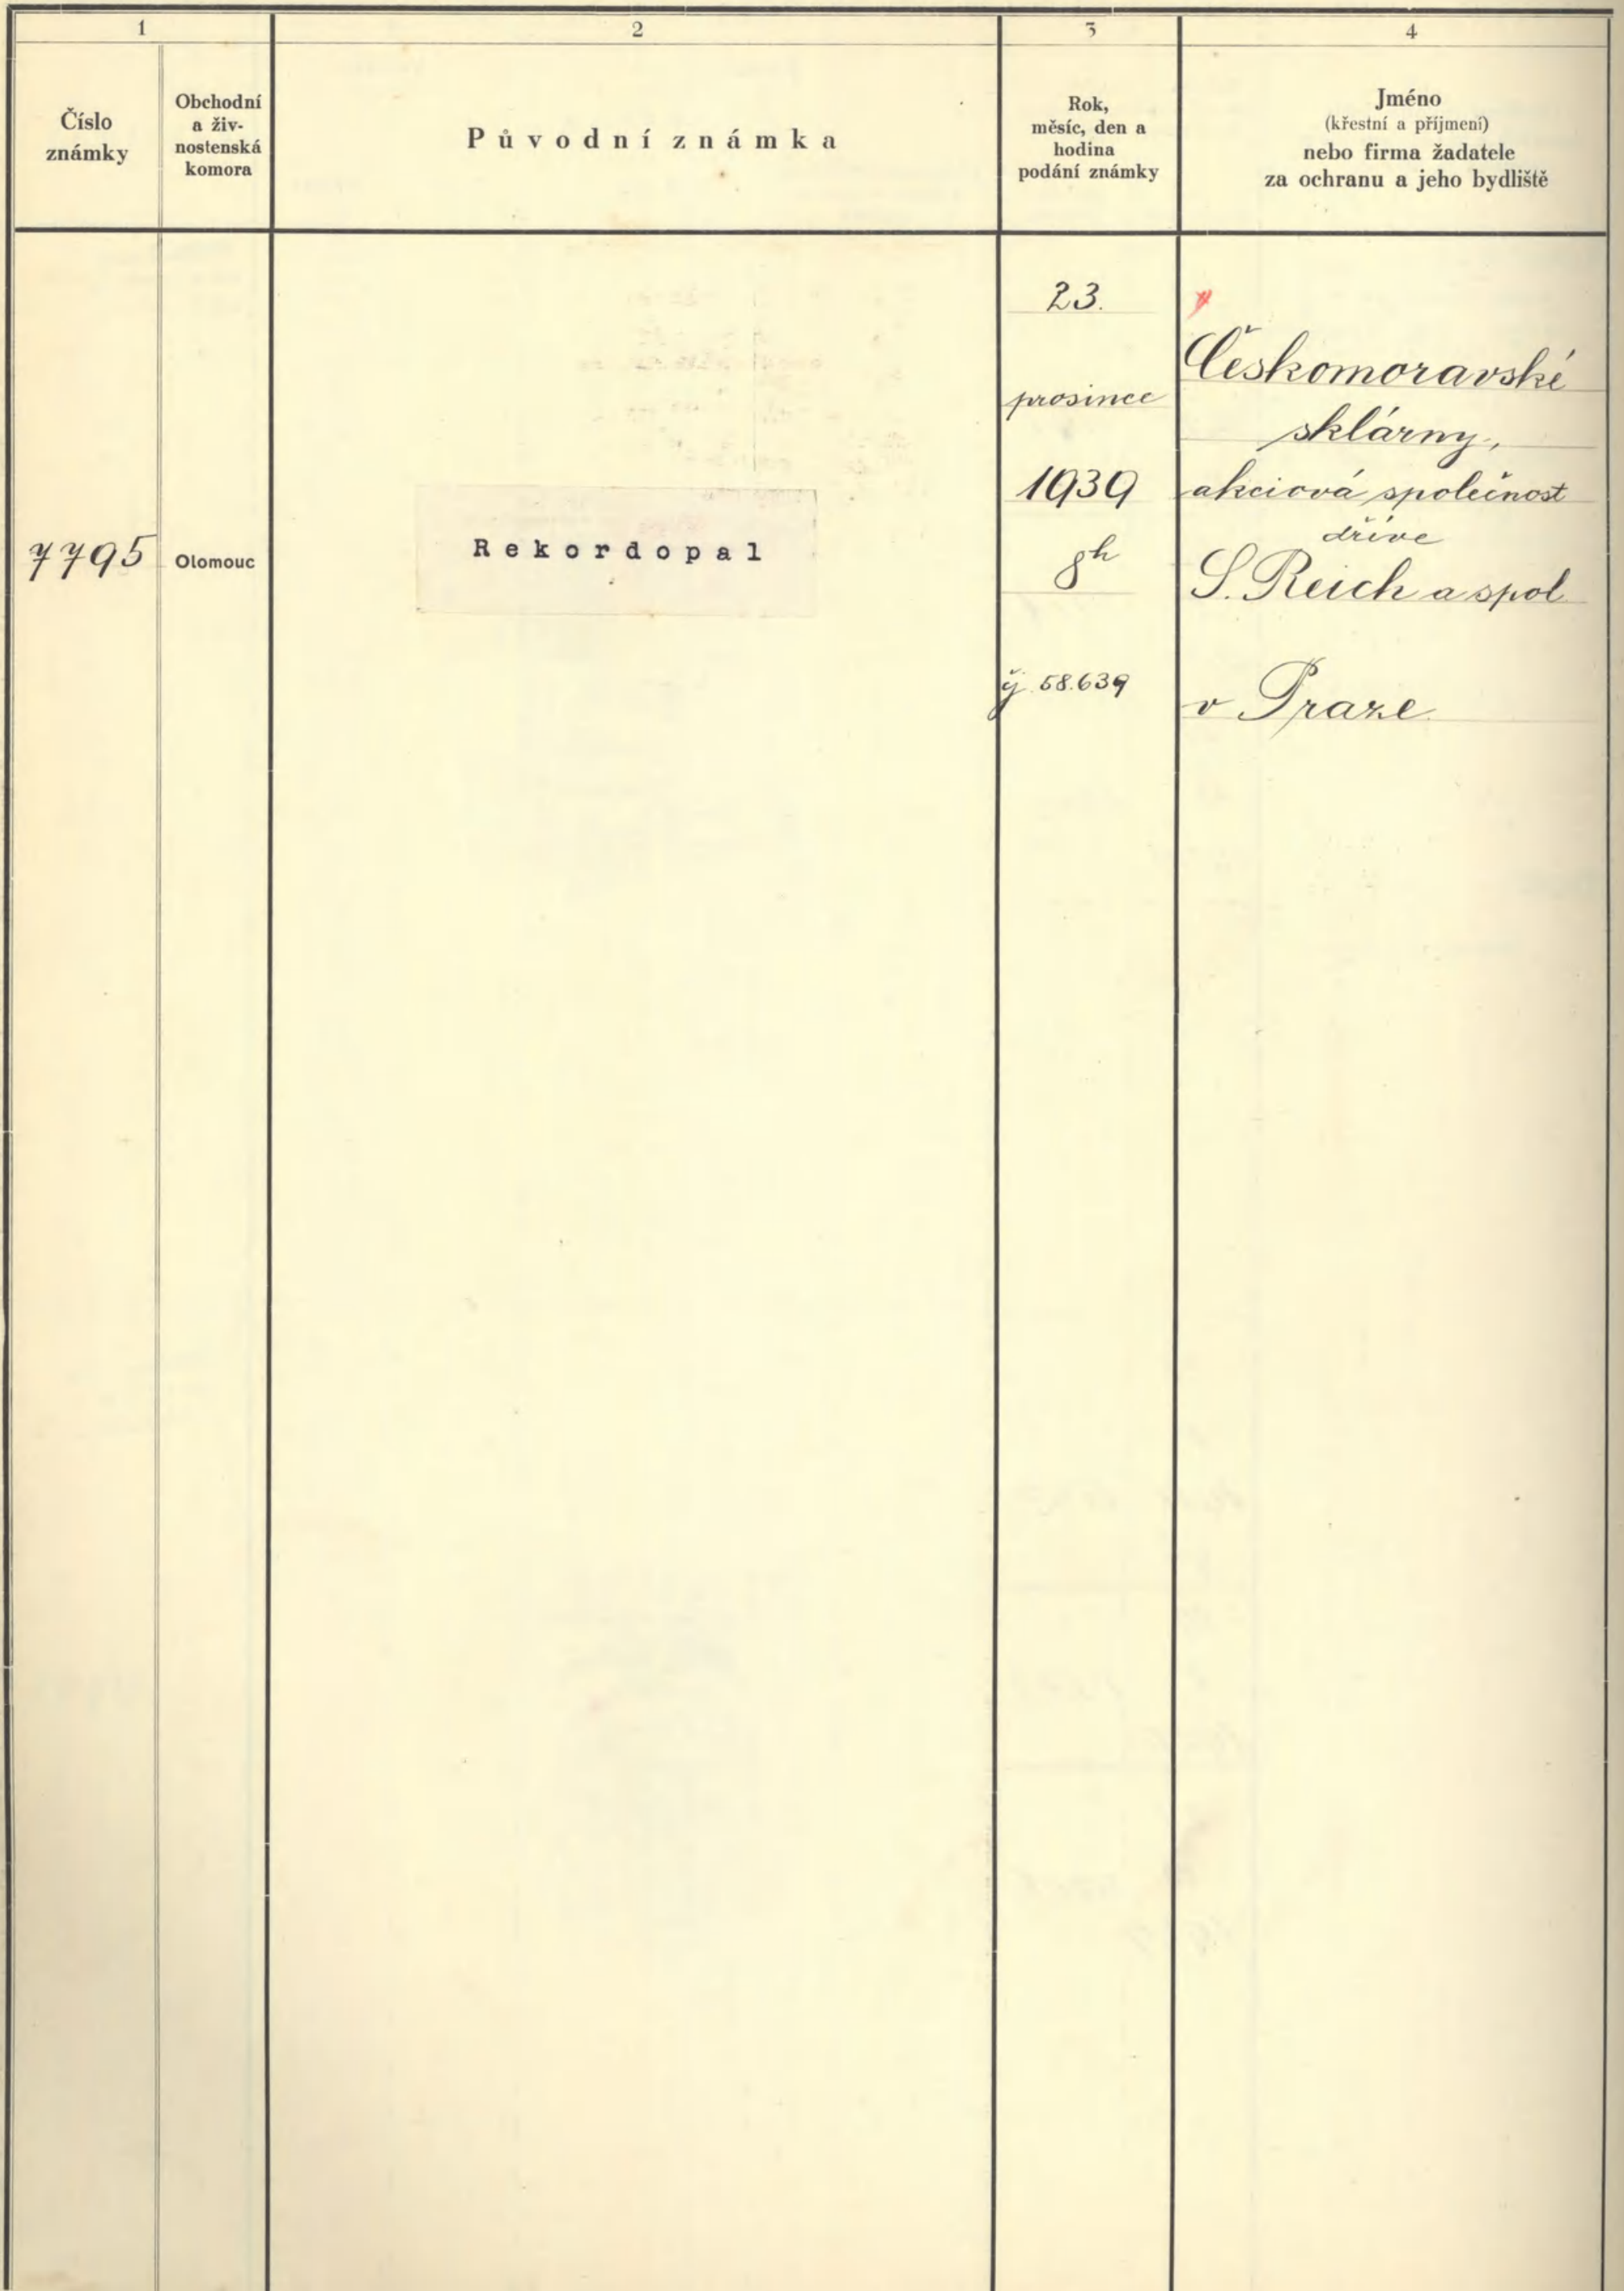 1
2
3
4
Číslo
známky
Obchodní
a živ-
nostenská
komora
Původní známka
Rok,
měsíc, den a
hodina
podání známky
Jméno
(křestní a příjmení)
nebo firma žadatele
za ochranu a jeho bydliště
7795
Olomouc
Rekordopal
23.
prosince
1939
8h
čj 58.639
Českomoravské
sklárny,
akciová společnost
dříve
S. Reich a spol
v Praze